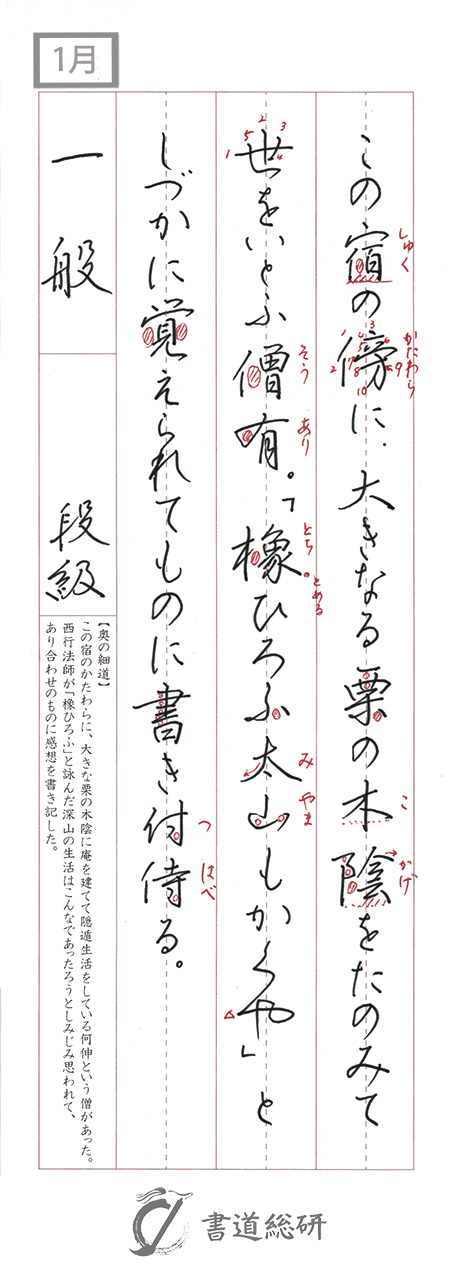 1月
この宿の傍に、大きなる栗の木陰をたのみて
しゅく
かたわら
こ
かげ
世をいとふ僧有。「橡ひろふ太山もかくや」と
そう
あり
とち
とめる
み
やま
しづかに覚えられてものに書き付侍る。
つ
はべ
一般 段級
【奥の細道】
この宿のかたわらに、大きな栗の木陰に庵を建てて隠遁生活をしている何伸という僧があった。
西行法師が「橡ひろふ」と詠んだ深山の生活はこんなであったろうとしみじみ思われて、
あり合わせのものに感想を書き記した。
書道総研